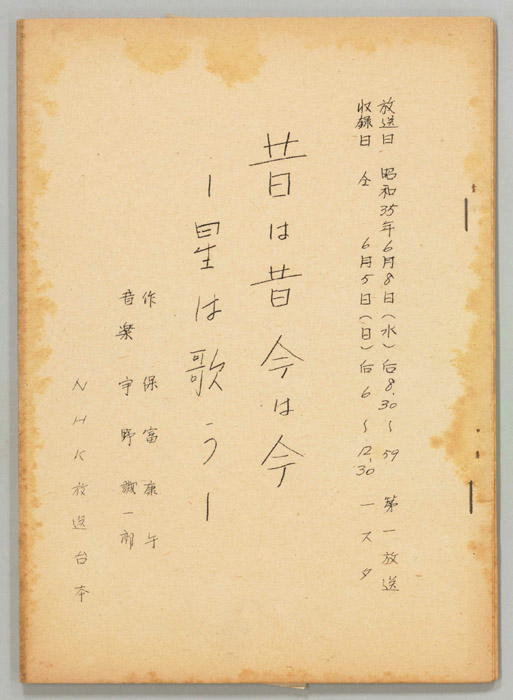 放送日 昭和35年6月8日(水)后8.30~59 第一放送
収録日 仝 6月5日(日)后6~12.30 一スタ
昔は昔 今は今
ー星は歌うー
作 保富康午
音楽 宇野誠一郎
NHK放送台本